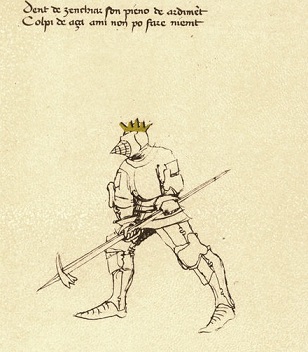 Dent de zenchiar son pieno de ardimẽt
Colpi de aça a mi non po fare nient